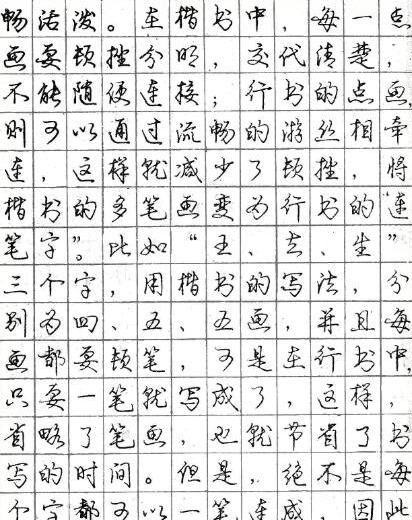 畅活泼。在楷书中，每一点
画要顿挫分明，交代清楚，
不能随便连接；行书的点画，
则可以通过流畅的游丝相牵
连，这样就减少了顿挫，将
楷书的多笔画变为行书的“连
笔字”。比如“王、去、生”
三个字，用楷书的写法，分
别为四、五、五画，并且每
画都要顿笔，可是在行书中，
只要一笔就写成了，这样，
省略了笔画，也就节省了书
写的时间。但是，绝不是每
个字都可以一笔连成，因此